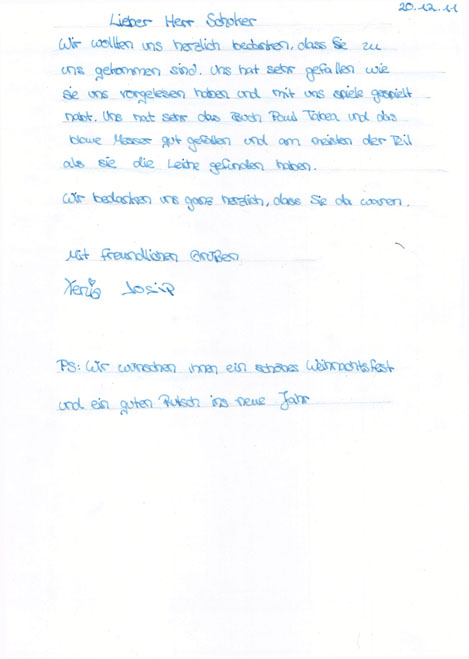 20.12.11
Lieber Herr Schoker
Wir wollten uns herzlich bedanken, dass Sie zu
uns gekommen sind. Uns hat sehr gefallen wie
sie uns vorgelesen haben und mit uns spiele gespielt
habt. Uns hat sehr das Buch Paul Token und das
blaue Messer gut gefallen und am meisten der Teil
als sie die Leiche gefunden haben.
Wir bedanken uns ganz herzlich, dass Sie da waren.
Mit freundlichen Grüßen
Xenia Josip
PS: Wir wünschen ihnen ein schönes Weihnachtsfest
und ein guten Rutsch ins neue Jahr